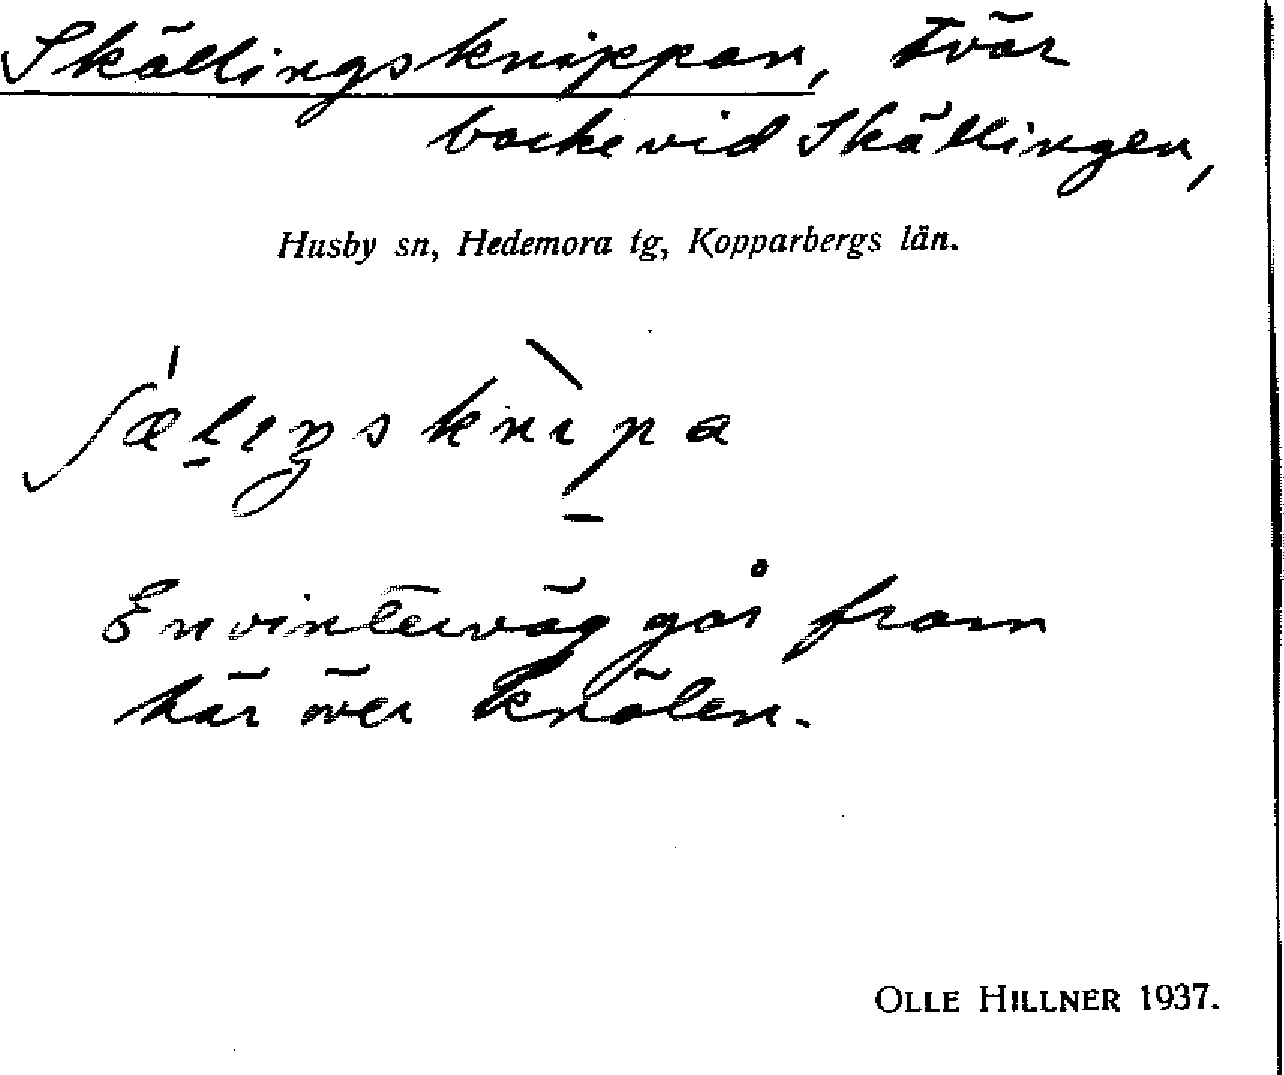 Skällingsknippan, tvär
backe vid Skällingen,
Husby sn, Hedemora tg, Kopparbergs län.
ʃæ̀l̠ıŋsknìp̠a
En vinterväg går fram
här över knölen.
OLLE HILLNER 1937.